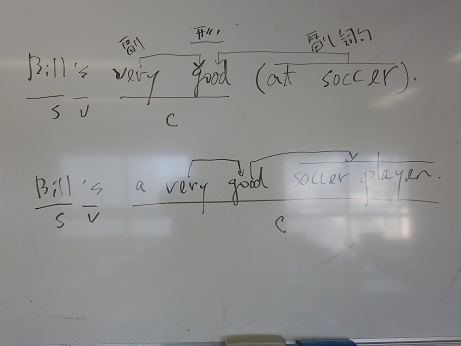 副 形 副詞句
Bill's very good (at soccer).
S V C
Bill's a very good soccer player.
S V C